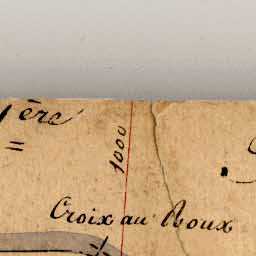 ère
1000
Croix au Roux